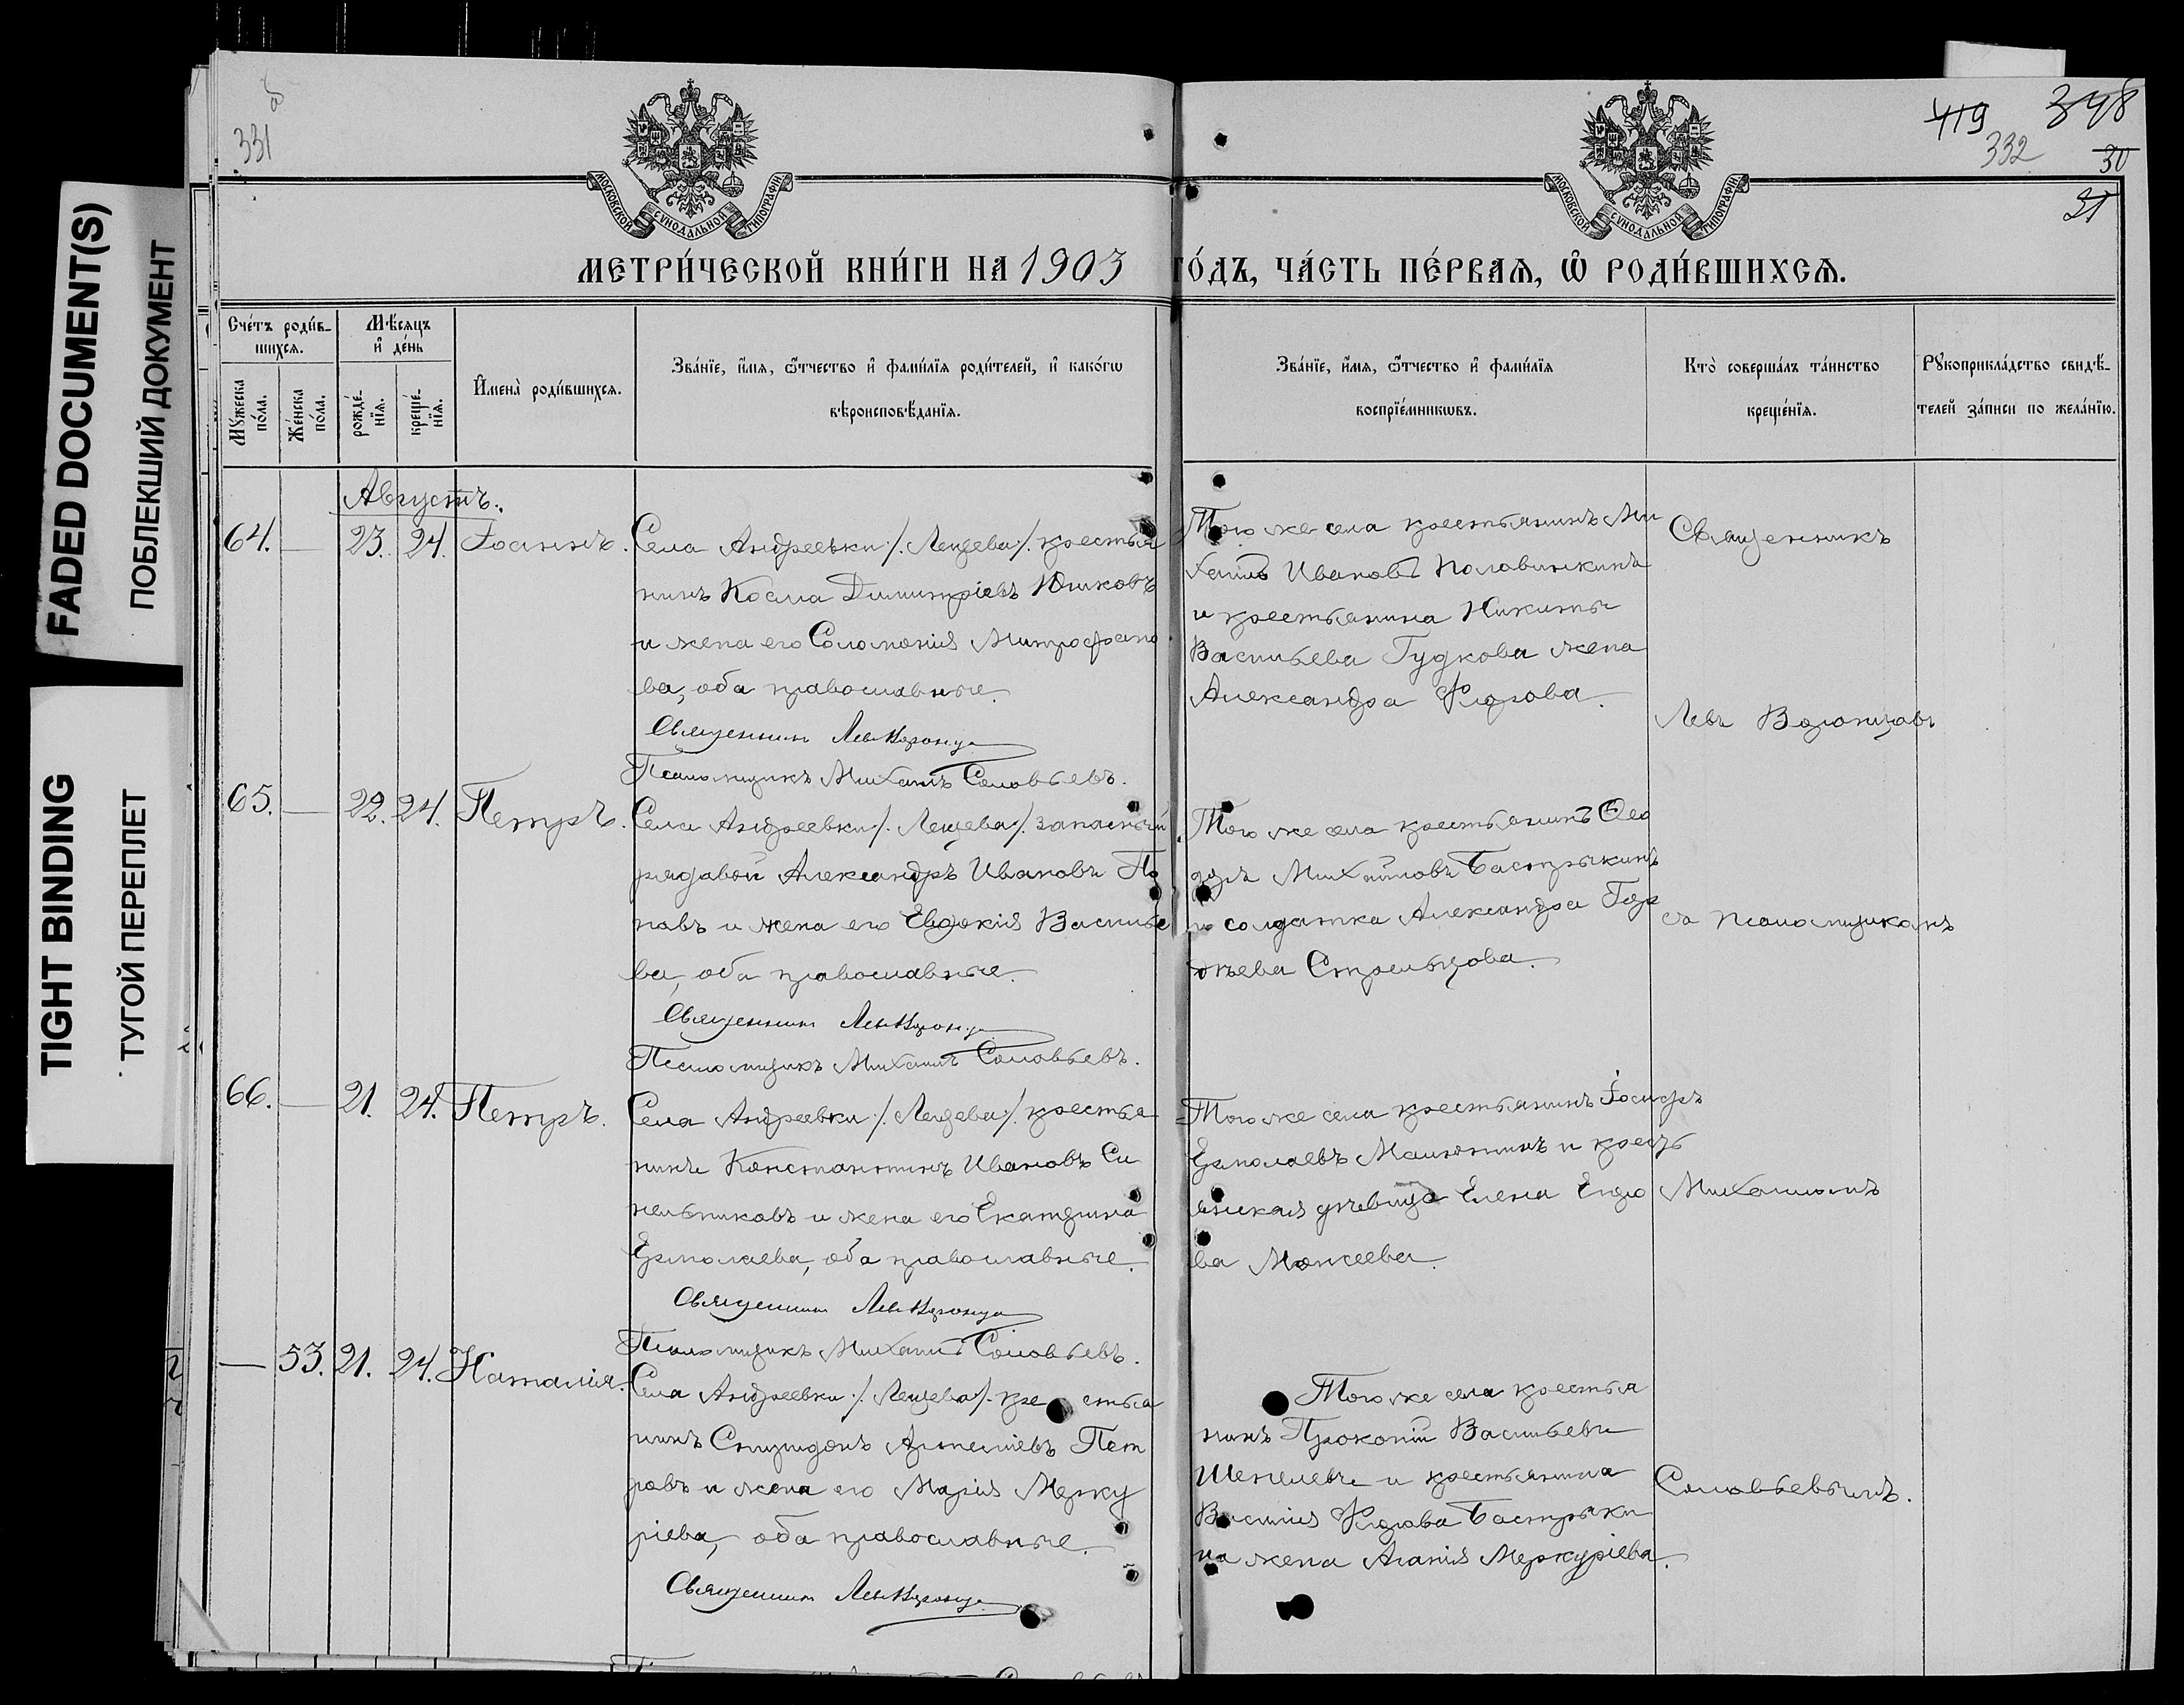 FADED DOCUMENT(S)
ПОБЛЕКШИЙ ДОКУМЕНТ
TIGHT BINDING
ТУГОЙ ПЕРЕПЛЕТ
331
об
419 348
332 30
31
МОСКОВСКОЙ СѴНОДАЛЬНОЙ ТИПОГРАФІИ
МОСКОВСКОЙ СѴНОДАЛЬНОЙ ТИПОГРАФІИ
МЕТРИ́ЧЕСКОЙ КНИ́ГИ НА 1903 ГО́ДЪ, ЧА́СТЬ ПЕ́РВАѦ, Ѿ РОДИ́ВШИХСѦ.
Сче́тъ роди́в-
шихсѧ.
Мꙋжеска по́ла.
Же́нска по́ла.
Мѣ́сяцъ и де́нь
рожде́-нїѧ.
креще́-нїѧ.
Имена̀ роди́вшихсѧ.
Зва́нїе, и́мѧ, ѻ́тчество и фами́лїѧ роди́телей, и како́гѡ
вѣроисповѣ́данїѧ.
Зва́нїе, и́мѧ, ѻ́тчество и фами́лїѧ
воспрїе́мникѡвъ.
Кто̀ соверша́лъ та́инство
креще́нїѧ.
Рꙋкоприкла́дство свидѣ́-
телей за́писи по жела́нїю.
Августъ.
64. — 23. 24. Іоаннъ.
Села Андреевки /. Лещева /. крестья
нинъ Косма Димитріевъ Юшковъ
и жена его Соломонія Митрофано
ва, оба православные.
Священникъ Левъ Воронцовъ
Псаломщикъ Михаилъ Соловьевъ.
Того же села крестьянинъ Ми
хаилъ Ивановъ Половинкинъ
и крестьянина Никиты
Васильева Гудкова жена
Александра Флорова.
Священникъ
Левъ Воронцовъ
65. — 22. 24. Петръ.
Села Андреевки /. Лещева /. запасный
рядовой Александръ Ивановъ По
повъ и жена его Евдокія Василье
ва, оба православные.
Священникъ Левъ Воронцовъ
Псаломщикъ Михаилъ Соловьевъ.
Того же села крестьянинъ Ѳео
доръ Михайловъ Бастрыкинъ
и солдатка Александра Гор
дѣева Стрельцова.
съ псаломщикомъ
66. — 21. 24. Петръ.
Села Андреевки /. Лещева /. крестья
нинъ Константинъ Ивановъ Си
нельниковъ и жена его Екатерина
Ермолаева, оба православные.
Священникъ Левъ Воронцовъ
Псаломщикъ Михаилъ Соловьевъ.
Того же села крестьянинъ Іосифъ
Ермолаевъ Малютинъ и кресть
янская дѣвица Елена
ва Моисеева.
Михаиломъ
— 53. 21. 24. Наталія.
Села Андреевки /. Лещева /. кре стья
нинъ Спиридонъ Артеміевъ Пет
ровъ и жена его Марія Мерку
ріева, оба православные.
Священникъ Левъ Воронцовъ
Того же села крестья
нинъ Прокопій Васильевъ
Шепелевъ и крестьянина
Василія Флорова Бастрыки
на жена Агапія Меркуріева.
Соловьевымъ.